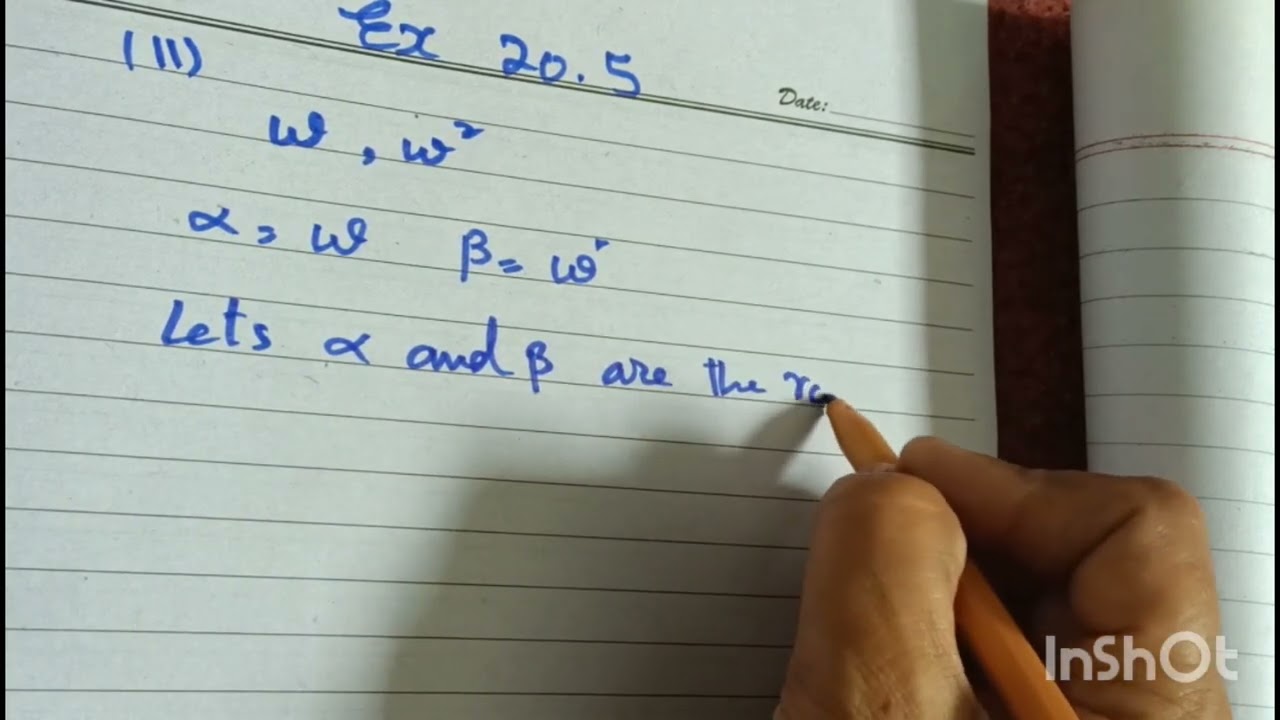 Ex 20.5
(11)
Date:
ω, ω²
α = ω β = ω²
Lets α and β are the ro
InShOt